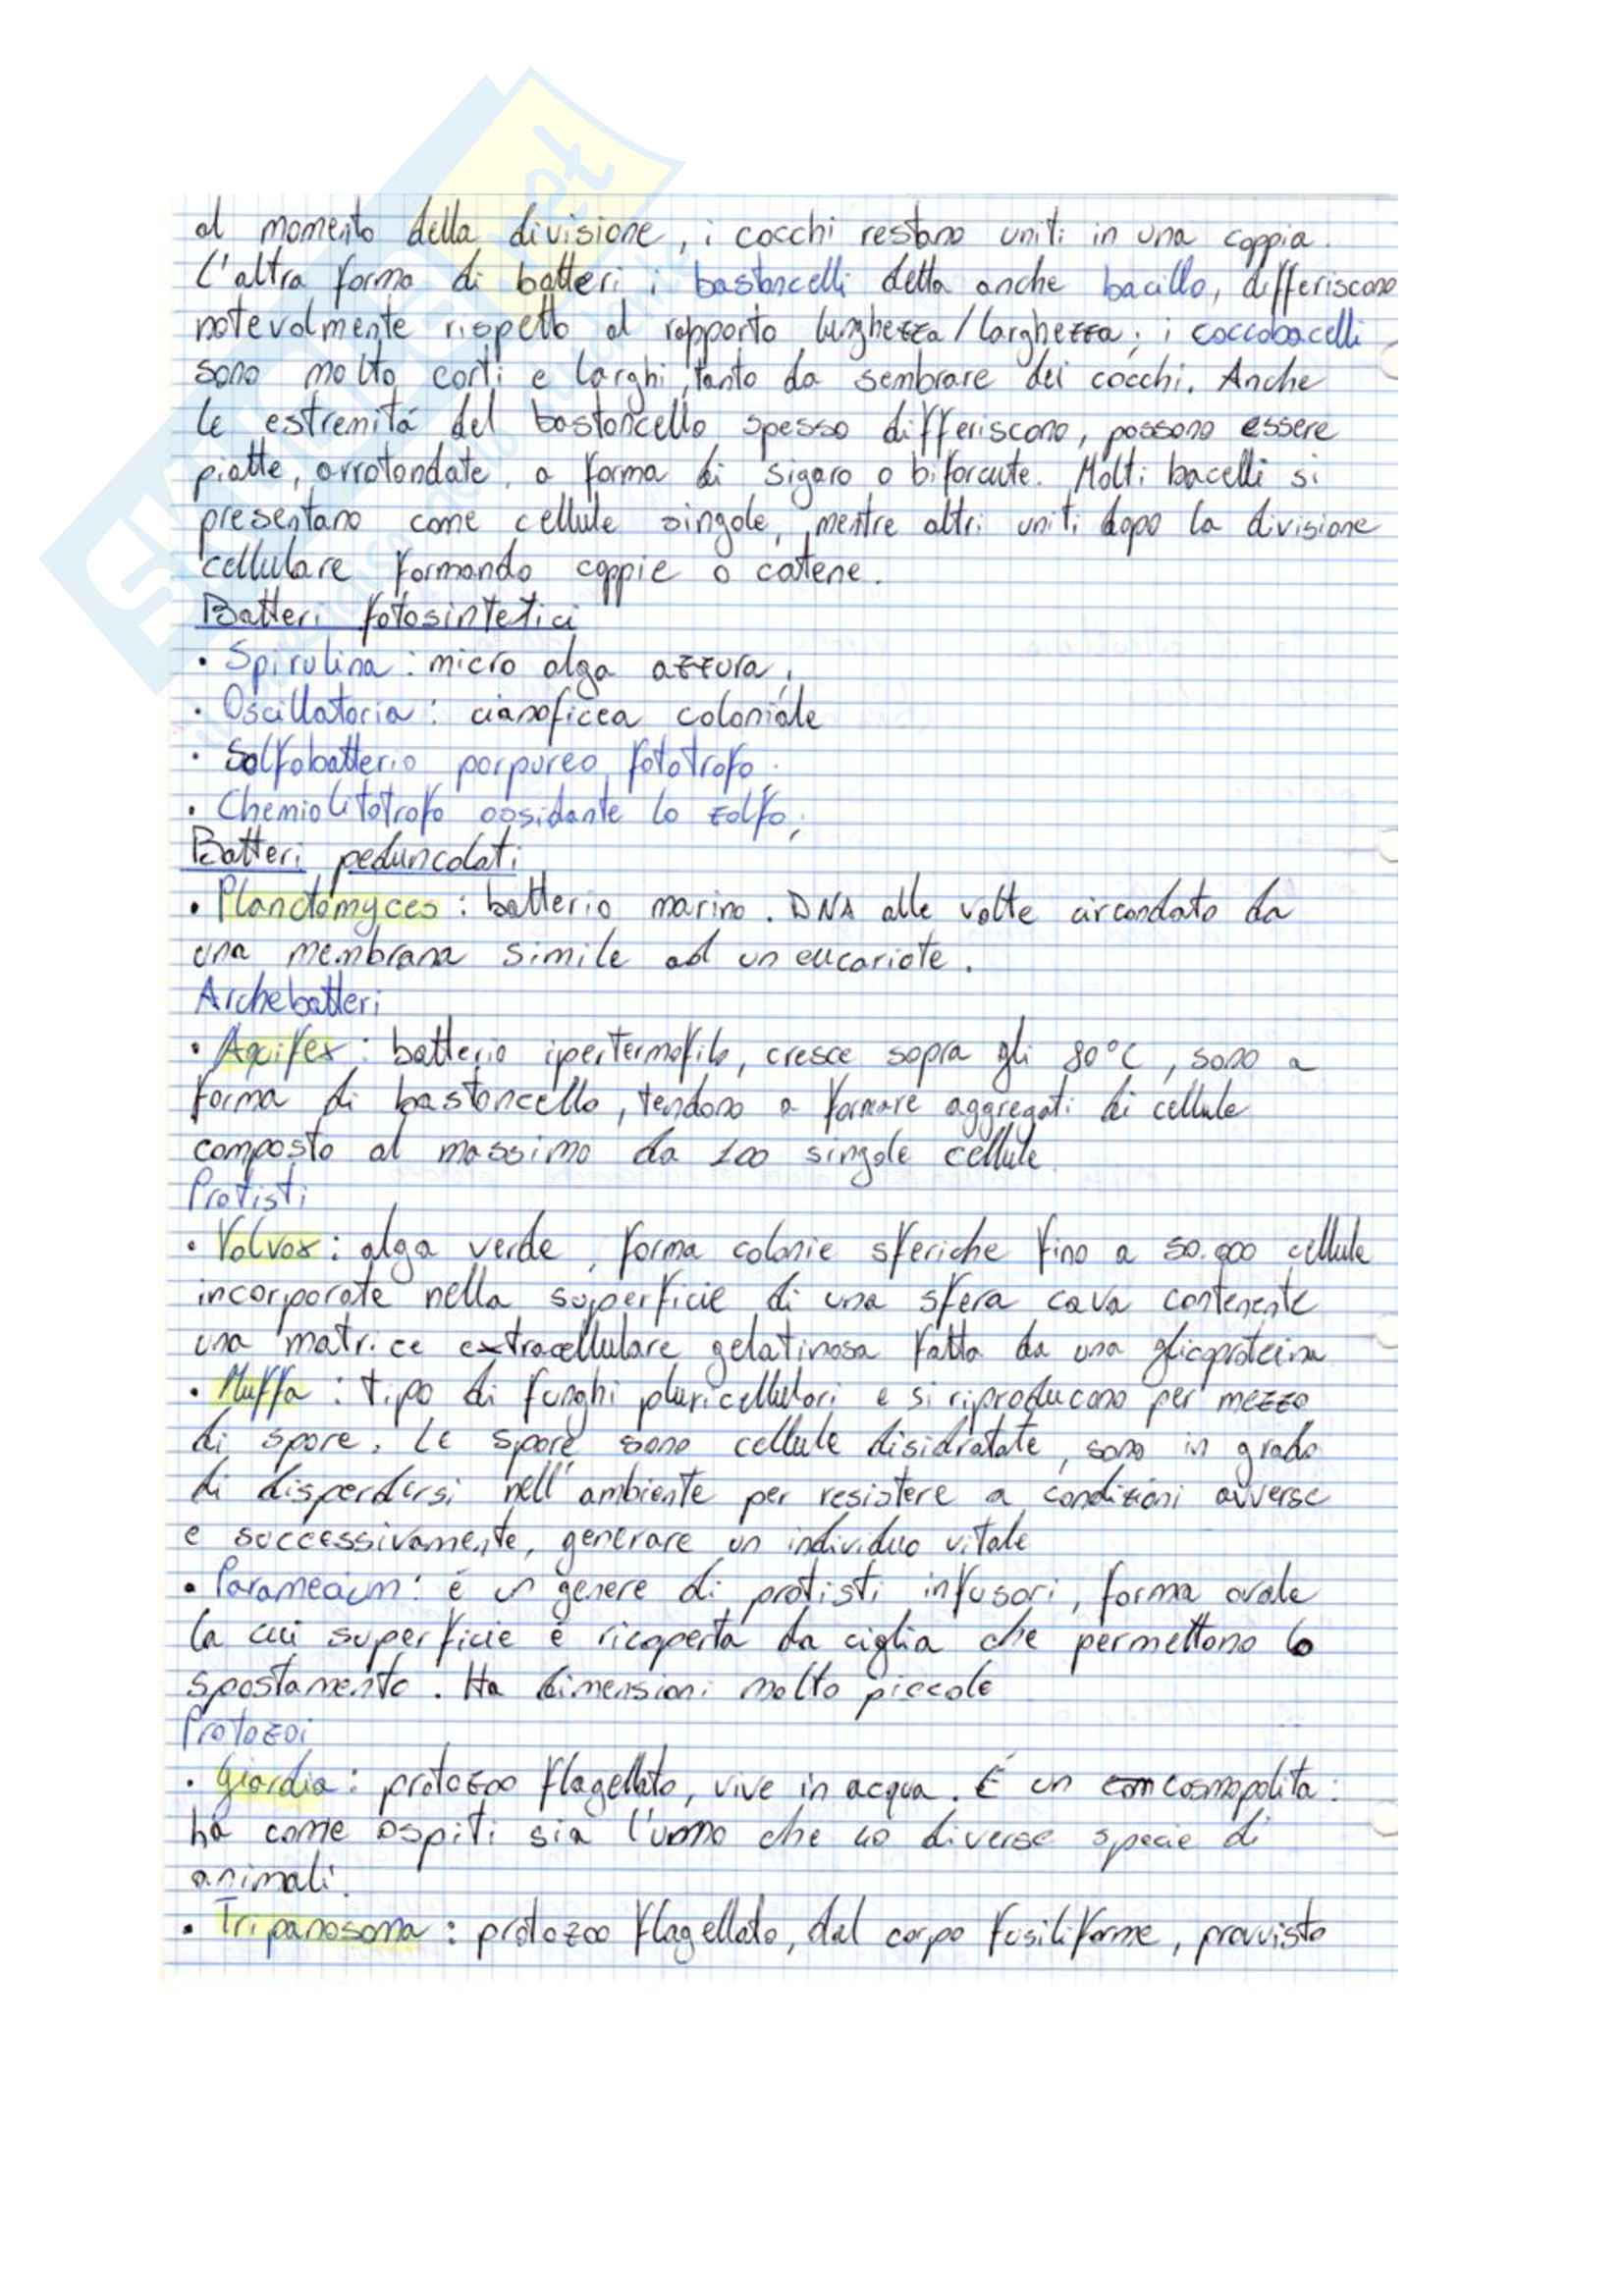 al momento della divisione, i cocchi restano uniti in una coppia.
L'altra forma di batteri i bastoncelli detta anche bacillo, differiscono
notevolmente rispetto al rapporto lunghezza/larghezza; i coccobacelli
sono molto corti e larghi, tanto da sembrare dei cocchi. Anche
le estremitá del bastoncello spesso differiscono, possono essere
piatte, arrotondate, a forma di sigaro o biforcute. Molti bacelli si
presentano come cellule singole, mentre altri uniti dopo la divisione
cellulare formando coppie o catene.
Batteri fotosintetici
• Spirulina: micro alga azzura,
• Oscillatoria: cianoficea coloniale
• Solfobatterio porpureo fototrofo;
• Chemiolitotrofo ossidante lo zolfo;
Batteri peduncolati
• Planctomyces: batterio marino. DNA alle volte circondato da
una membrana simile ad un eucariote.
Archebatteri
• Aquifex: batterio ipertermofilo, cresce sopra gli 80°C, sono a
forma di bastoncello, tendono a formare aggregati di cellule
composto al massimo da 100 singole cellule
Protisti
• Volvox: alga verde, forma colonie sferiche fino a 50.000 cellule
incorporate nella superficie di una sfera cava contenente
una matrice extracellulare gelatinosa fatta da una glicoproteina
• Muffa: tipo di funghi pluricellulari e si riproducono per mezzo
di spore. Le spore sono cellule disidratate, sono in grado
di disperdersi nell'ambiente per resistere a condizioni avverse
e successivamente, generare un individuo vitale
• Paramecium: é un genere di protisti infusori, forma ovale
la cui superficie è ricoperta da ciglia che permettono lo
spostamento. Ha dimensioni molto piccole
Protozoi
• Giardia: protozoo flagellato, vive in acqua. É un cosmopolita:
ha come ospiti sia l'uomo che 40 diverse specie di
animali.
• Tripanosoma: protozoo flagellato, dal corpo fusiliforme, provvisto